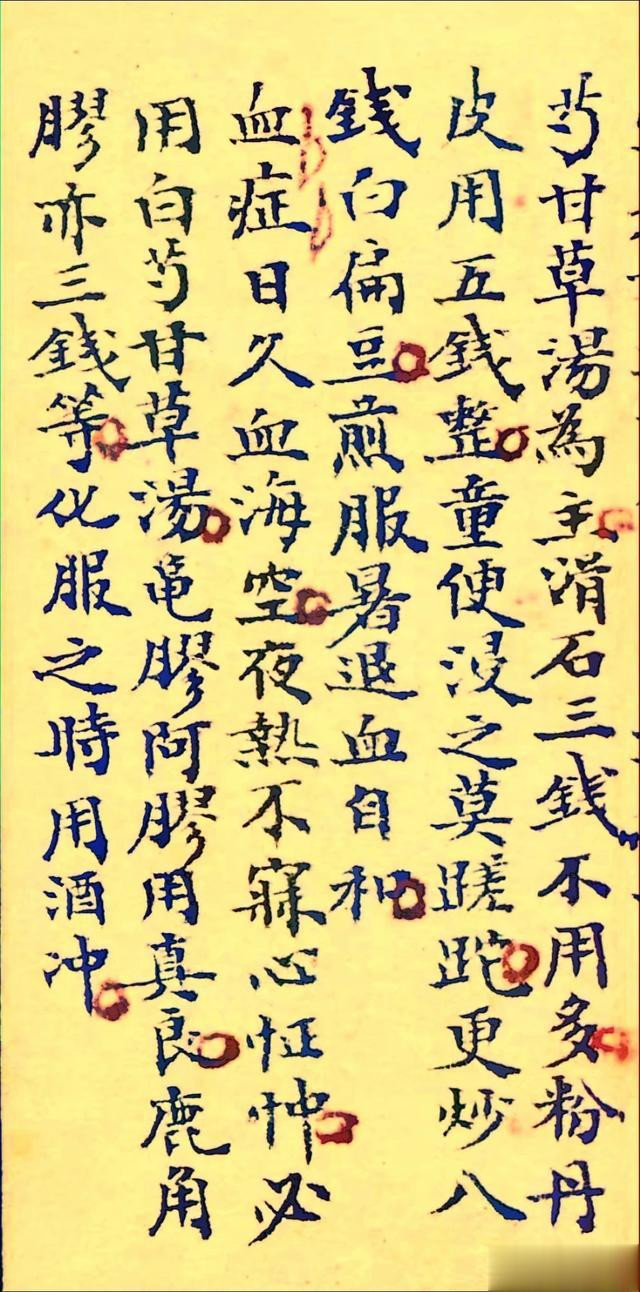 芍甘草湯為主滑石三錢不用多粉丹
皮用五錢整童便浸之莫蹉跎更炒八
錢白扁豆煎服暑退血自和
血症日久血海空夜熱不寐心怔忡必
用白芍甘草湯黾膠阿膠用真良鹿角
膠亦三錢等化服之時用酒冲